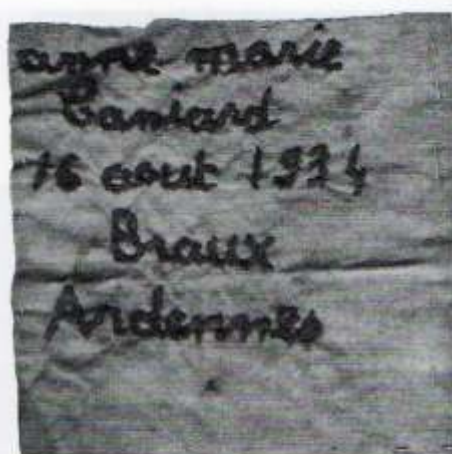 anne marie
Caniard
16 aout 1934
Braux
Ardennes